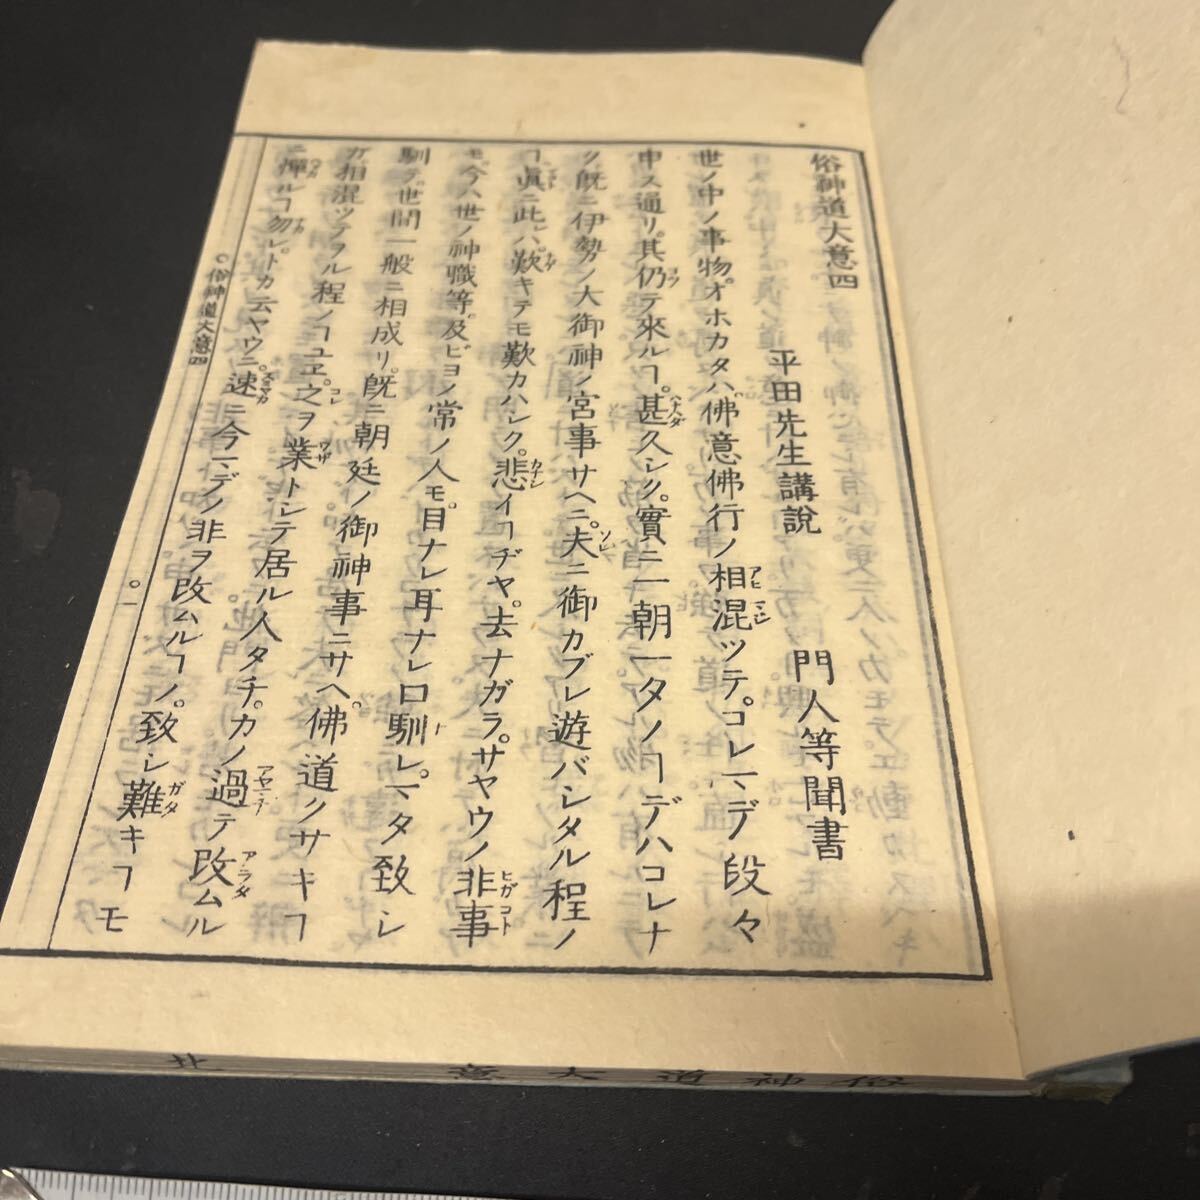 俗神道大意四
平田先生講說　門人等聞書
世ノ中ノ事物。オホカタハ佛意佛行ノ相混ツテ。コレマデ段々
申ス通リ。其仍テ來ルヿ。甚久シク。實ニ一朝一タノヿデハコレナ
ク。旣ニ伊勢ノ大御神ノ宮事サヘニ。夫ニ御カブレ遊バシタル程ノ
ヿ。眞ニ此ハ。歎キテモ歎カハシク。悲イヿヂヤ。去ナガラ。サヤウノ非事
モ。今ハ世ノ神職等。及ビヨノ常ノ人モ。目ナレ耳ナレ口馴レ。マタ致シ
馴テ。世間一般ニ相成リ。旣ニ朝廷ノ御神事ニサヘ。佛道クサキヿ
ガ相混ツテヲル程ノヿユヱ。之ヲ業トシテ居ル人タチ。カノ過テ改ムル
ニ憚ルヿ勿レ。トカ云ヤウニ。速ニ今マデノ非ヲ改ムルヿノ。致シ難キヿモ
俗神道大意四
○一
俗神道大意